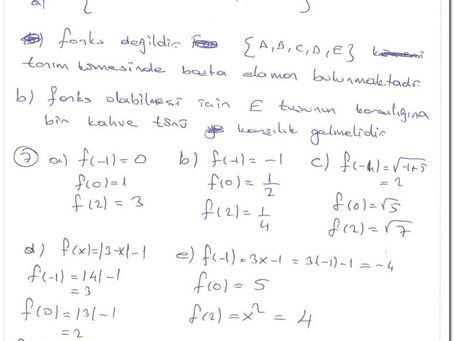 a) {
fonks değildir. {A,B,C,D,E}
tanım kümesinde başka eleman bulunmaktadır.
b) fonks olabilmesi için E tuşunun karşılığına
bir kahve türü karşılık gelmelidir.
7 a) f(-1) = 0 b) f(-1) = -1 c) f(-1) = √-1+5
= 2
f(0) = 1 f(0) = 1/2 f(0) = √5
f(2) = 3 f(2) = 1/4 f(2) = √7
d) f(x) = |3-x|-1 e) f(-1) = 3x-1 = 3(-1)-1 = -4
f(-1) = |4|-1 f(0) = 5
= 3
f(0) = |3|-1 f(2) = x² = 4
= 2